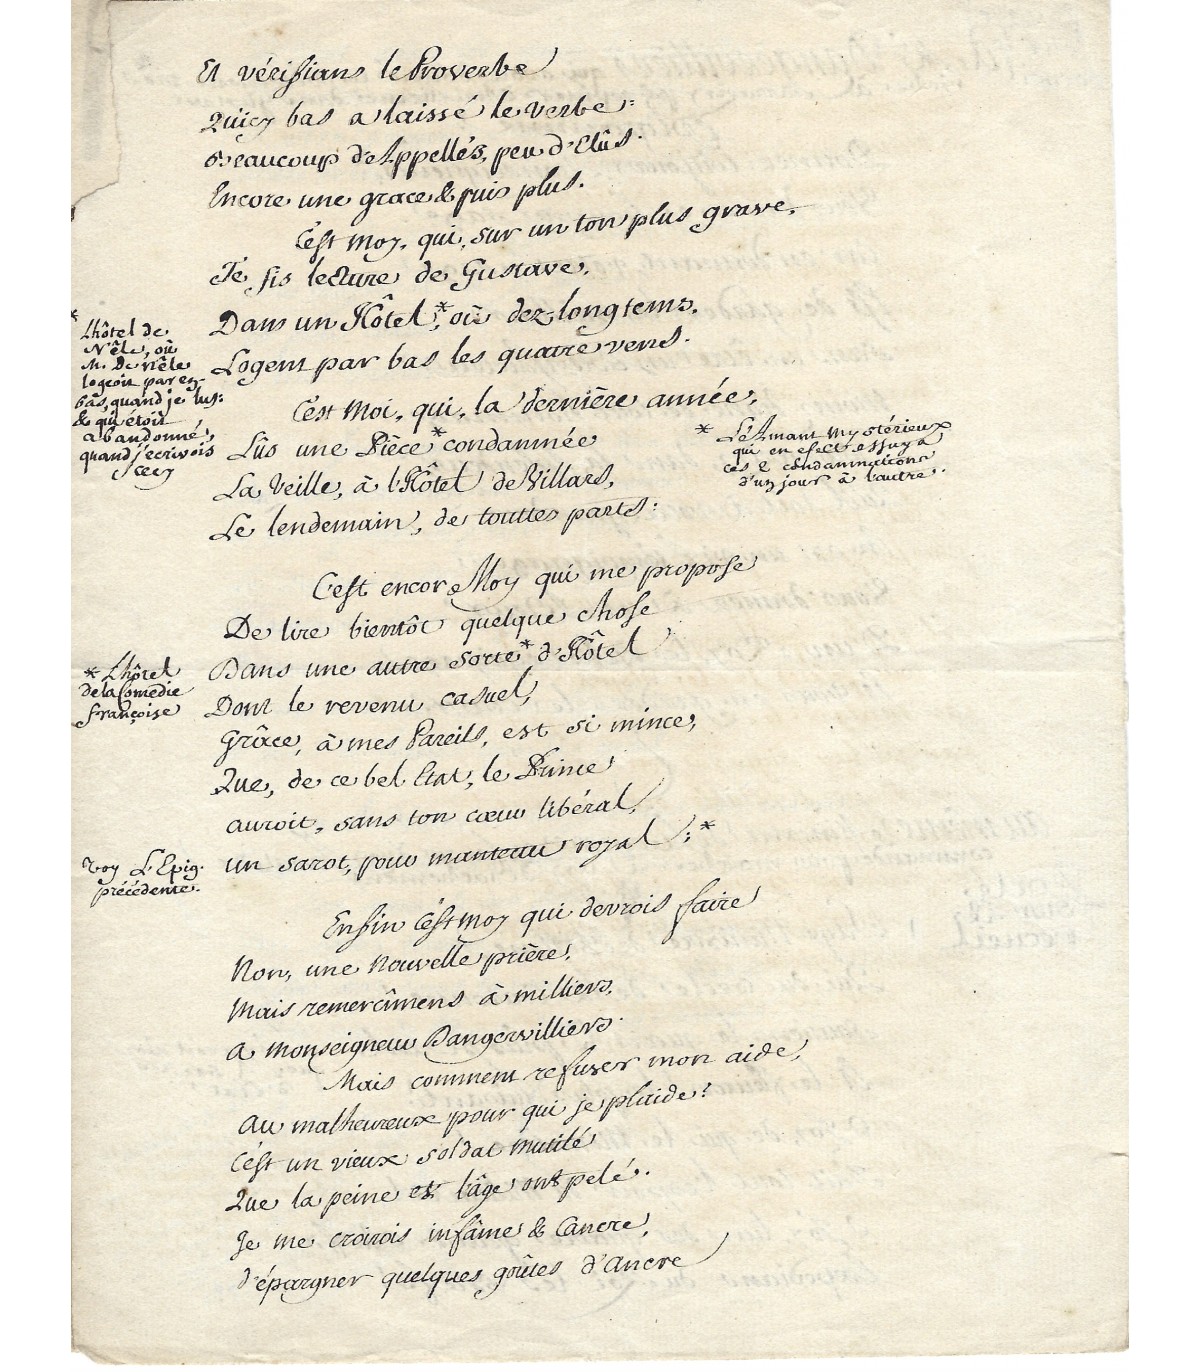 Et vérifians le Proverbe
Qu'icy bas a laissé le verbe:
Beaucoup d'Appellés, peu d'Elûs.
Encore une grace & puis plus.
C'est Moy, qui, sur un ton plus grave,
Je fis lecture de Gustave,
Dans un Hôtel*, où dez longtems,
Logent par bas les quatre vens.
* L'hôtel de
Nêle, où
M. De nêle
logeoit par en-
bâs, quand je lus:
& qui étoit
abandonné,
quand j'ecrivois
cecy
C'est Moi, qui, la dernière année,
Lûs une Pièce* condamnée
La Veille, à l'Hôtel de Villars,
Le lendemain, de touttes parts:
* L'Amant Mystérieux
qui en effect essuya
ces 2 condamnations
d'un jour à l'autre.
C'est encor Moy qui me propose
De lire bientôt quelque chose
Dans une autre sorte* d'Hôtel
Dont le revenu casuel,
Grâce, à mes Pareils, est si mince,
Que, de ce bel Etat, le Prince
auroit, sans ton cœur libéral,
un sarot, pour manteau royal;*
* L'hôtel
de la Comédie
françoise
voy L'Epig.
précédente.
Enfin C'est Moy qui devrois faire
Non, une Nouvelle prière,
Mais remercîmens à milliers,
A Monseigneur Dangervilliers.
Mais comment refuser mon aide,
Au malheureux pour qui je plaide?
C'est un vieux soldat mutilé
Que la peine et l'âge ont pelé.
Je me croirois infâme & Cancre,
d'épargner quelques goûtes d'Ancre